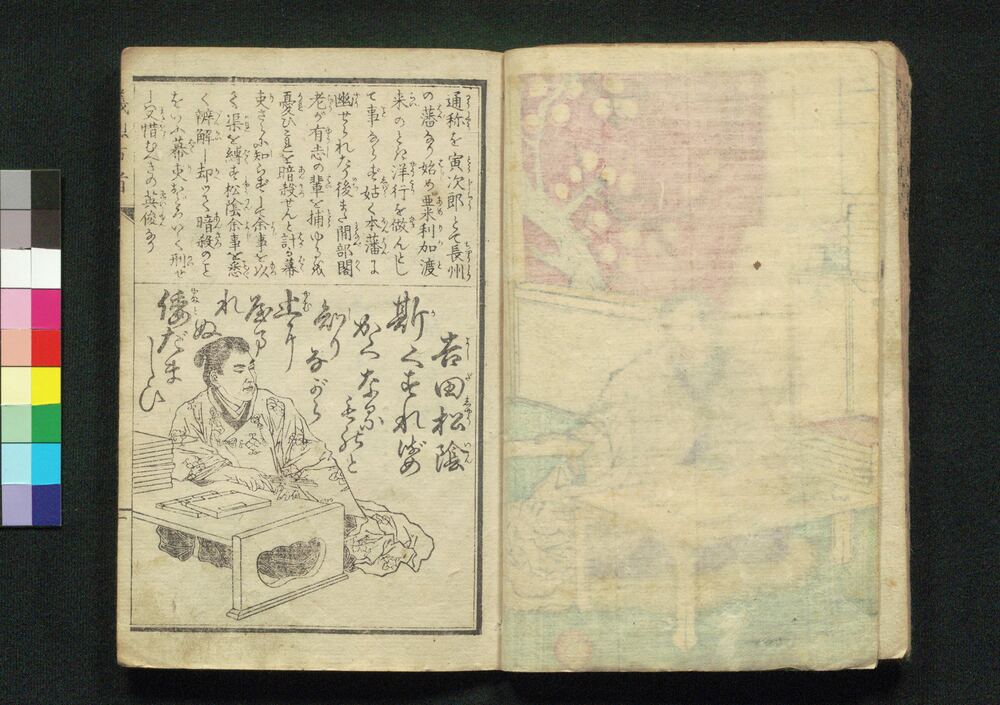 通称を寅次郎とて長州
の藩なり始め亜米利加渡
来のときに洋行を做んとし
て事ならず姑く本藩に
幽せられたり後また間部閣
老が有志の輩を捕ゆるを
憂ひ是を暗殺せんと計る幕
吏さらに知らずして余事を以
て渠を縛す松陰余事を悉
く辨解し却つて暗殺のこと
をいふ幕吏おどろいて刑せ
し又惜むべきの英俊なり
吉田松陰
斯くすれば
かくなる
ものと
知りながら
止に
止まれ
ぬ
倭だましひ